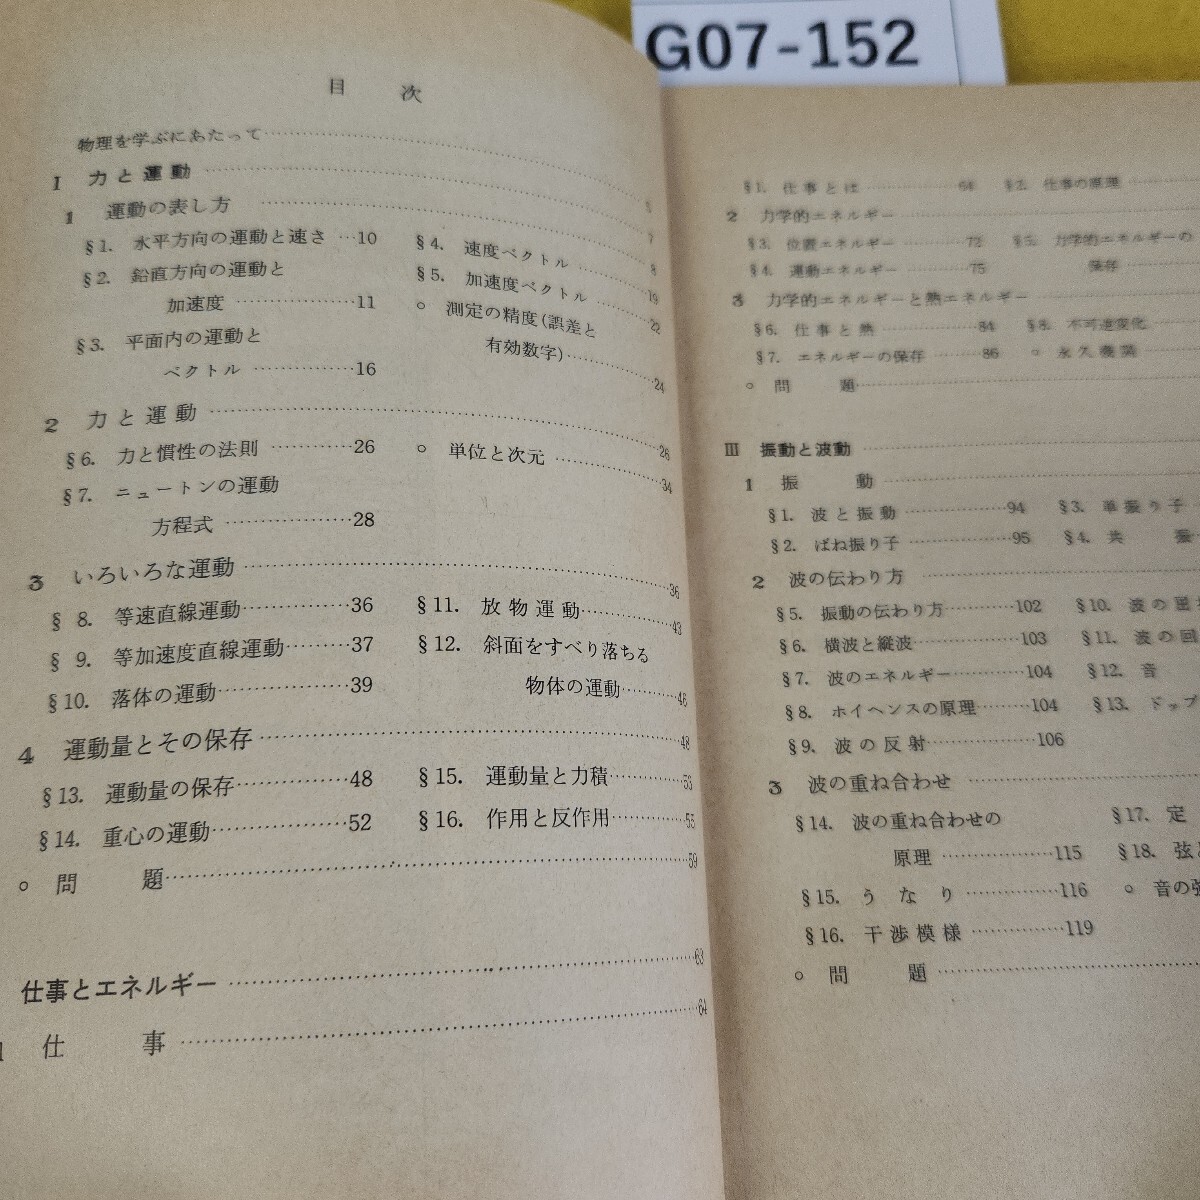 G07-152
目 次
物理を学ぶにあたって 5
I 力と運動 7
1 運動の表し方 8
§1. 水平方向の運動と速さ 10
§2. 鉛直方向の運動と
加速度 11
§3. 平面内の運動と
ベクトル 16
§4. 速度ベクトル 19
§5. 加速度ベクトル 22
○ 測定の精度(誤差と
有効数字) 24
2 力と運動 26
§6. 力と慣性の法則 26
§7. ニュートンの運動
方程式 28
○ 単位と次元 34
3 いろいろな運動 36
§8. 等速直線運動 36
§9. 等加速度直線運動 37
§10. 落体の運動 39
§11. 放物運動 43
§12. 斜面をすべり落ちる
物体の運動 46
4 運動量とその保存 48
§13. 運動量の保存 48
§14. 重心の運動 52
§15. 運動量と力積 53
§16. 作用と反作用 55
○ 問 題 59
仕事とエネルギー 63
1 仕 事 64
§1. 仕事とは 64
§2. 仕事の原理
2 力学的エネルギー
§3. 位置エネルギー 72
§4. 運動エネルギー 75
§5. 力学的エネルギーの
保存
3 力学的エネルギーと熱エネルギー
§6. 仕事と熱 84
§7. エネルギーの保存 86
§8. 不可逆変化
○ 永久機関
○ 問 題
III 振動と波動
1 振 動
§1. 波と振動 94
§2. ばね振り子 95
§3. 単振り子
§4. 共 振
2 波の伝わり方
§5. 振動の伝わり方 102
§6. 横波と縦波 103
§7. 波のエネルギー 104
§8. ホイヘンスの原理 104
§9. 波の反射 106
§10. 波の屈
§11. 波の回
§12. 音
§13. ドップ
3 波の重ね合わせ
§14. 波の重ね合わせの
原理 115
§15. うなり 116
§16. 干渉模様 119
§17. 定
§18. 弦
○ 音の強
○ 問 題